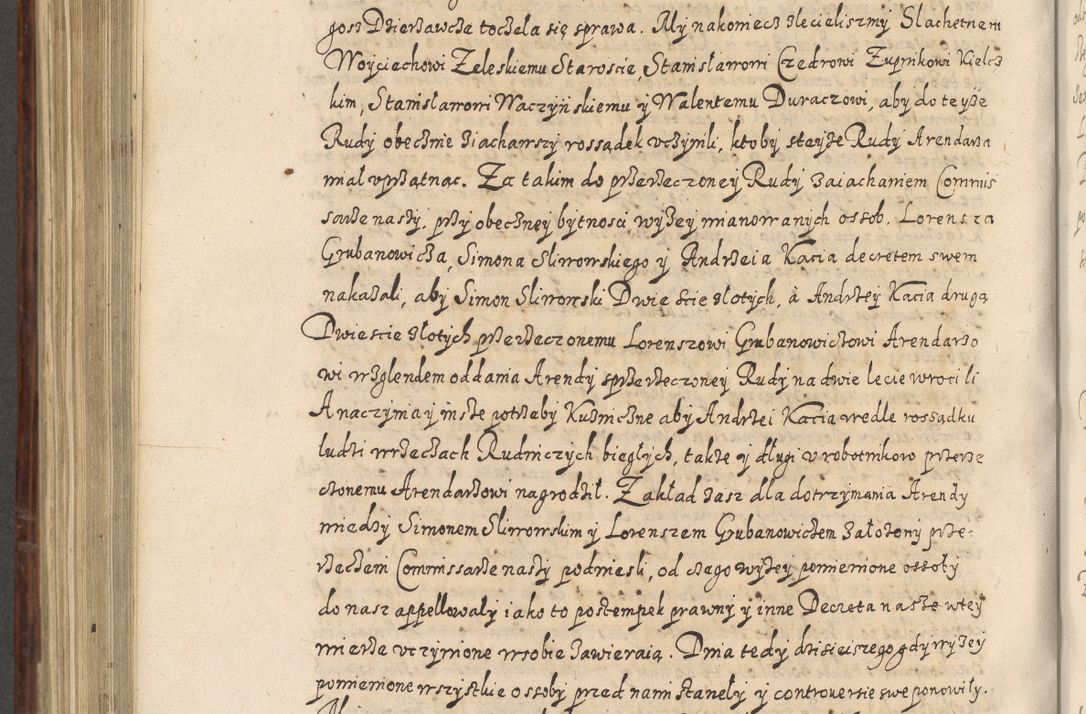 gosz Dzierżawcza toczela się sprawa. My nakoniecz zlecielismy Slachetnem
Woyciechowi Zeleskiemu Staroscie, Stanisławowi Czedrowi Zupnikowi Kielcz
kim, Stanisławowi Waczyńskiemu y Walentemu Duraczowi, aby do teyże
Rudy obecznie ziachawszy rossądek vczynili, ktoby steyże Rudy Arendarza
miał vprzątnac. Za takim do przerzeczoney Rudy zaiachaniem Commis
sarze naszy, przy obeczney bytnosci wyżey mianowanych ossob. Lorensza
Grubanowicza, Simona Sliwowskiego y Andrzeia Kacia decretem swem
nakazali, aby Simon Sliwowski Dwie scie złotych, à Andrzey Kacia drugą
Dwiescie złotych przerzeczonemu Lorenszowi Grubanowiczowi Arendarzo
wi wzglendem oddania Arendy sprzerzeczoney Rudy na dwie lecie wrocili
A naczynia y insze potrzeby Kuzniczne aby Andrzei Kacia wedle rossądku
ludzi wrzeczach Rudniczych biegłych, także y długi v robotnikow przerze
czonemu Arendarzowi nagrodził. Zakład zasz dla dotrzymania Arendy
miedzy Simonem Sliwowskim y Lorenszem Grubanowiczem założony prze-
rzeczeni Commissarze naszy podniesli, od czego wyżey pomienione ossoby
do nasz appellowały iako to postempek prawny y inne Decreta nasze wtey
mierze vczynione wsobie zawieraią. Dnia tedy dzisieiszego gdy wyżey
pomienione wszystkie ossoby przed nami stanęły y controuersie swe ponowiły.